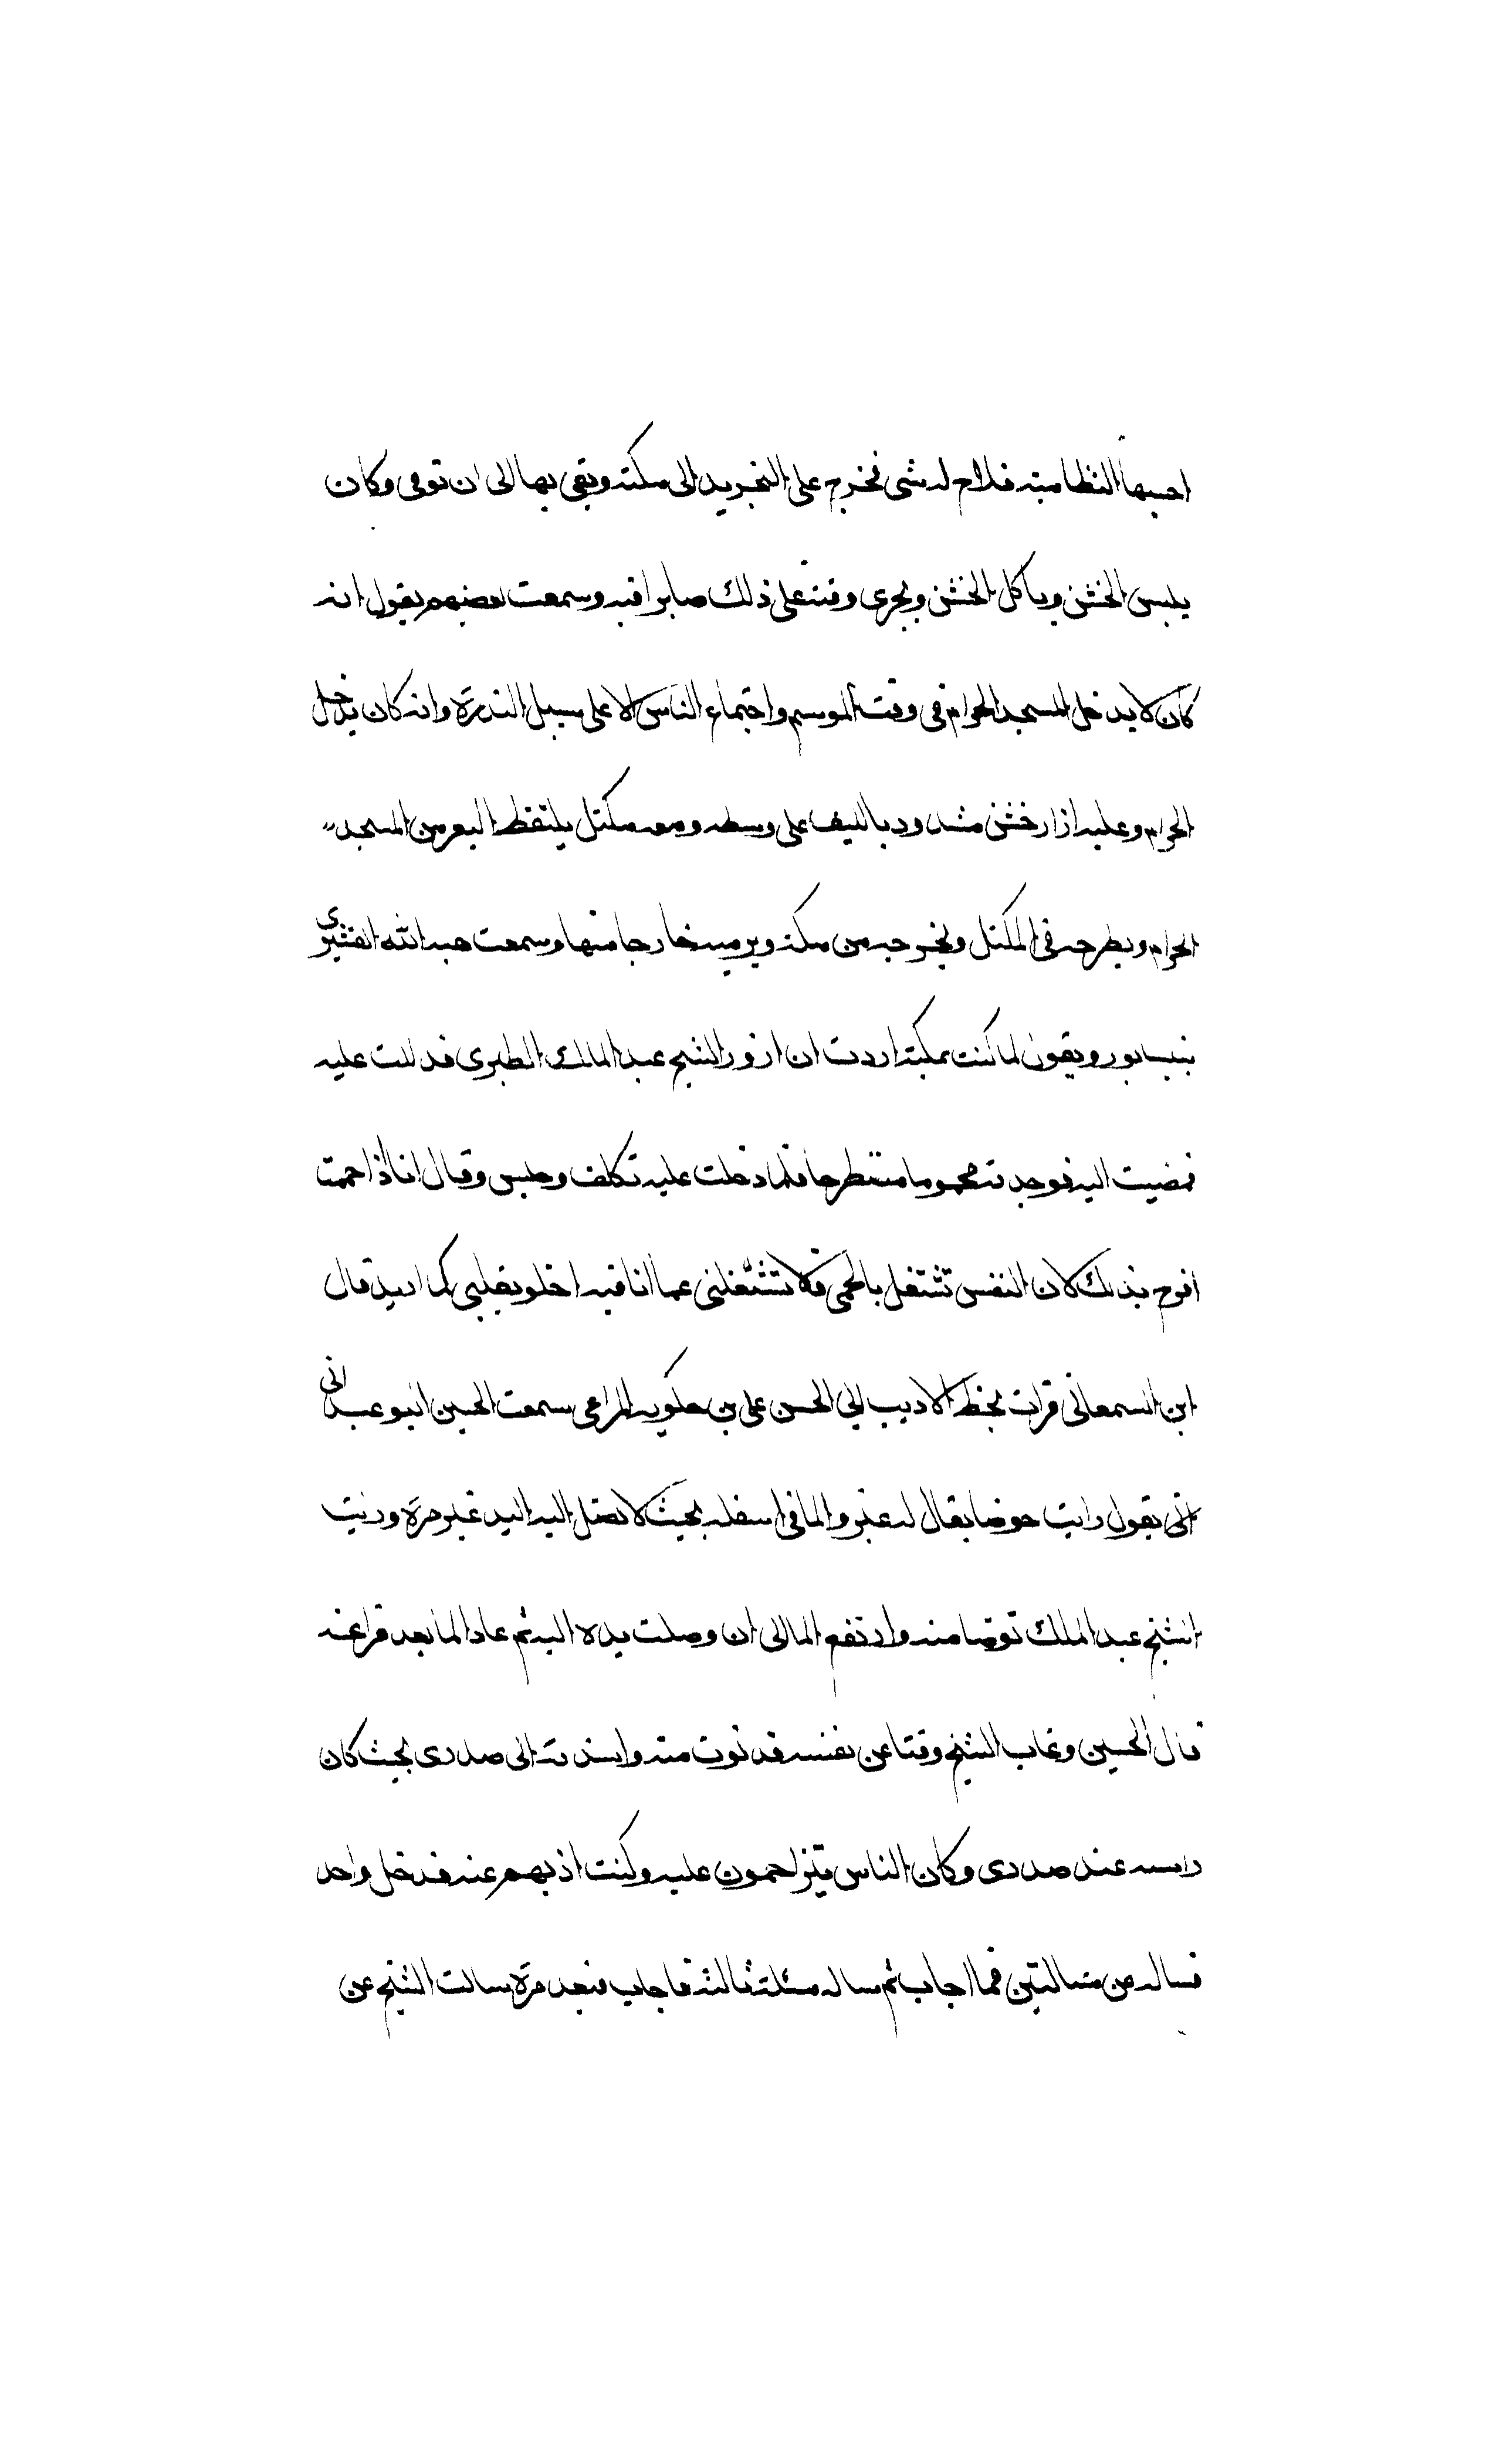 احسبها النظامية فلاح له شى فخرج على التجريد الى مكة وبقى بها الى ان توفى وكان
يلبس الخشن وياكل الخشن ويجرى وقته على ذلك صابرا فيه وسمعت بعضهم يقول انه
كان لا يدخل المسجد الحرام فى وقت الموسم واجتماع الناس الا على سبيل الندرة وانه كان يدخل
الحرام وعليه ازار خشن مشدود بالليف على وسطه ومعه مكتل يلتقط البعر من المسجد
الحرام ويطرحه فى المكتل ويخرجه من مكة ويرميه خارجا منها وسمعت هبة الله القشيرى
بنيسابور ويقول لما كنت بمكة اردت ان ازور الشيخ عبد المالك الطبرى فدللت عليه
فمضيت اليه فوجدته محموما منطرحا فلما دخلت عليه تكلف وجلس وقال انا اذا حممت
افرح بذلك لان النفس تشتغل بالحمى فلا تشغلنى عما انا فيه اخلو بقلبى كما اريد قال
ابن السمعانى قرات بخط الاديب ابى الحسن على بن حكويه المراغى سمعت الحسين
يقول رايت حوضا يقال له عنبر والما فى اسفله بحيث لا تصل اليه اليد غير مرة ورايت
الشيخ عبد الملك توضا منه وارتفع الما الى ان وصلت يده اليه ثم عاد الما بعد فراغه
قال الحسين وغاب الشيخ وقتا عن نفسه فدنوت منه واسندته الى صدرى بحيث كان
راسه عند صدرى وكان الناس يتزاحمون عليه وكنت اذبهم عنه فدخل واحد
فساله عن مسالتين فما اجاب ثم ساله مسئلة ثالثة فاجاب فبعد مرة سالت الشيخ عن